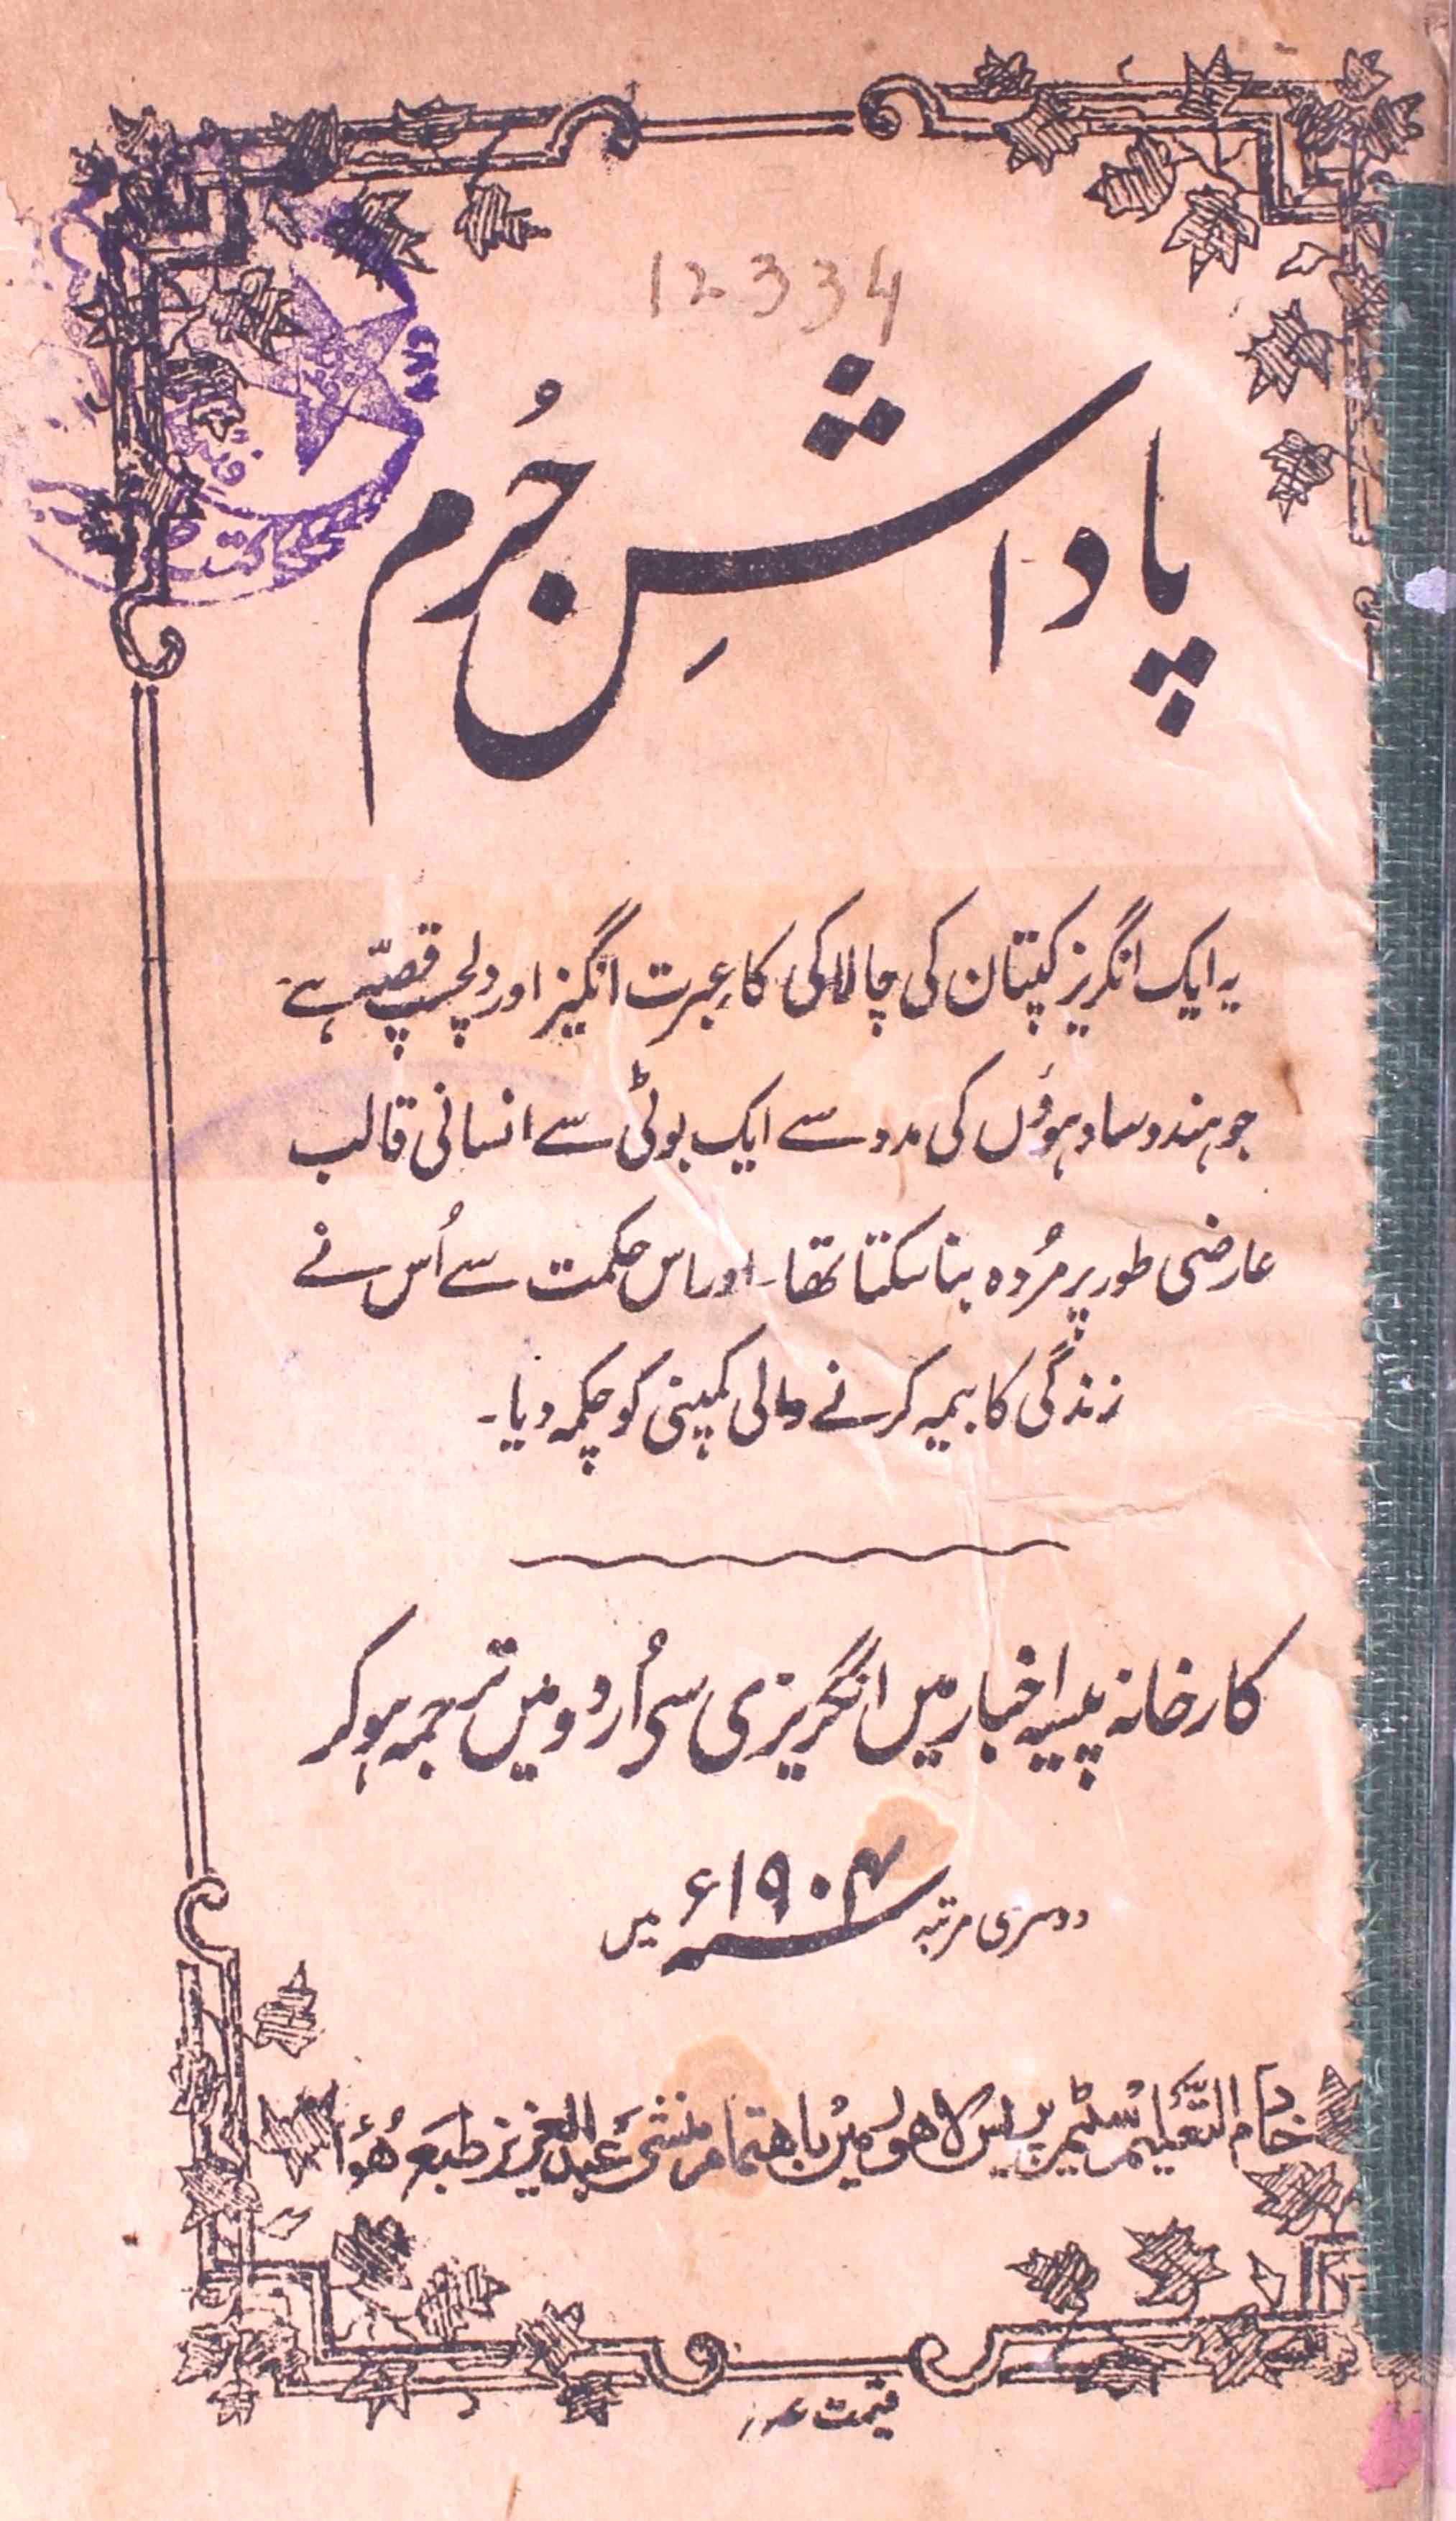 12334
پاداشِ جُرم
یہ ایک انگریز کپتان کی چالاکی کا عِبرت انگیز اور دلچسپ قصّہ ہے۔
جو ہندو سادہوؤں کی مدد سے ایک بوٹی سے انسانی قالب
عارضی طور پر مُردہ بنا سکتا تھا۔ اور اس حکمت سے اُس نے
زندگی کا بیمہ کرنے والی کمپنی کو چکمہ دیا۔
کارخانہ پیسہ اخبار میں انگریزی سی اُردو میں ترجمہ ہو کر
دوسری مرتبہ ۱۹۰۴ء میں
خادم التَّعلیم سٹیم پریس لاہور میں باہتمام منشی عبدالعزیز طبع ہُوَا
قیمت